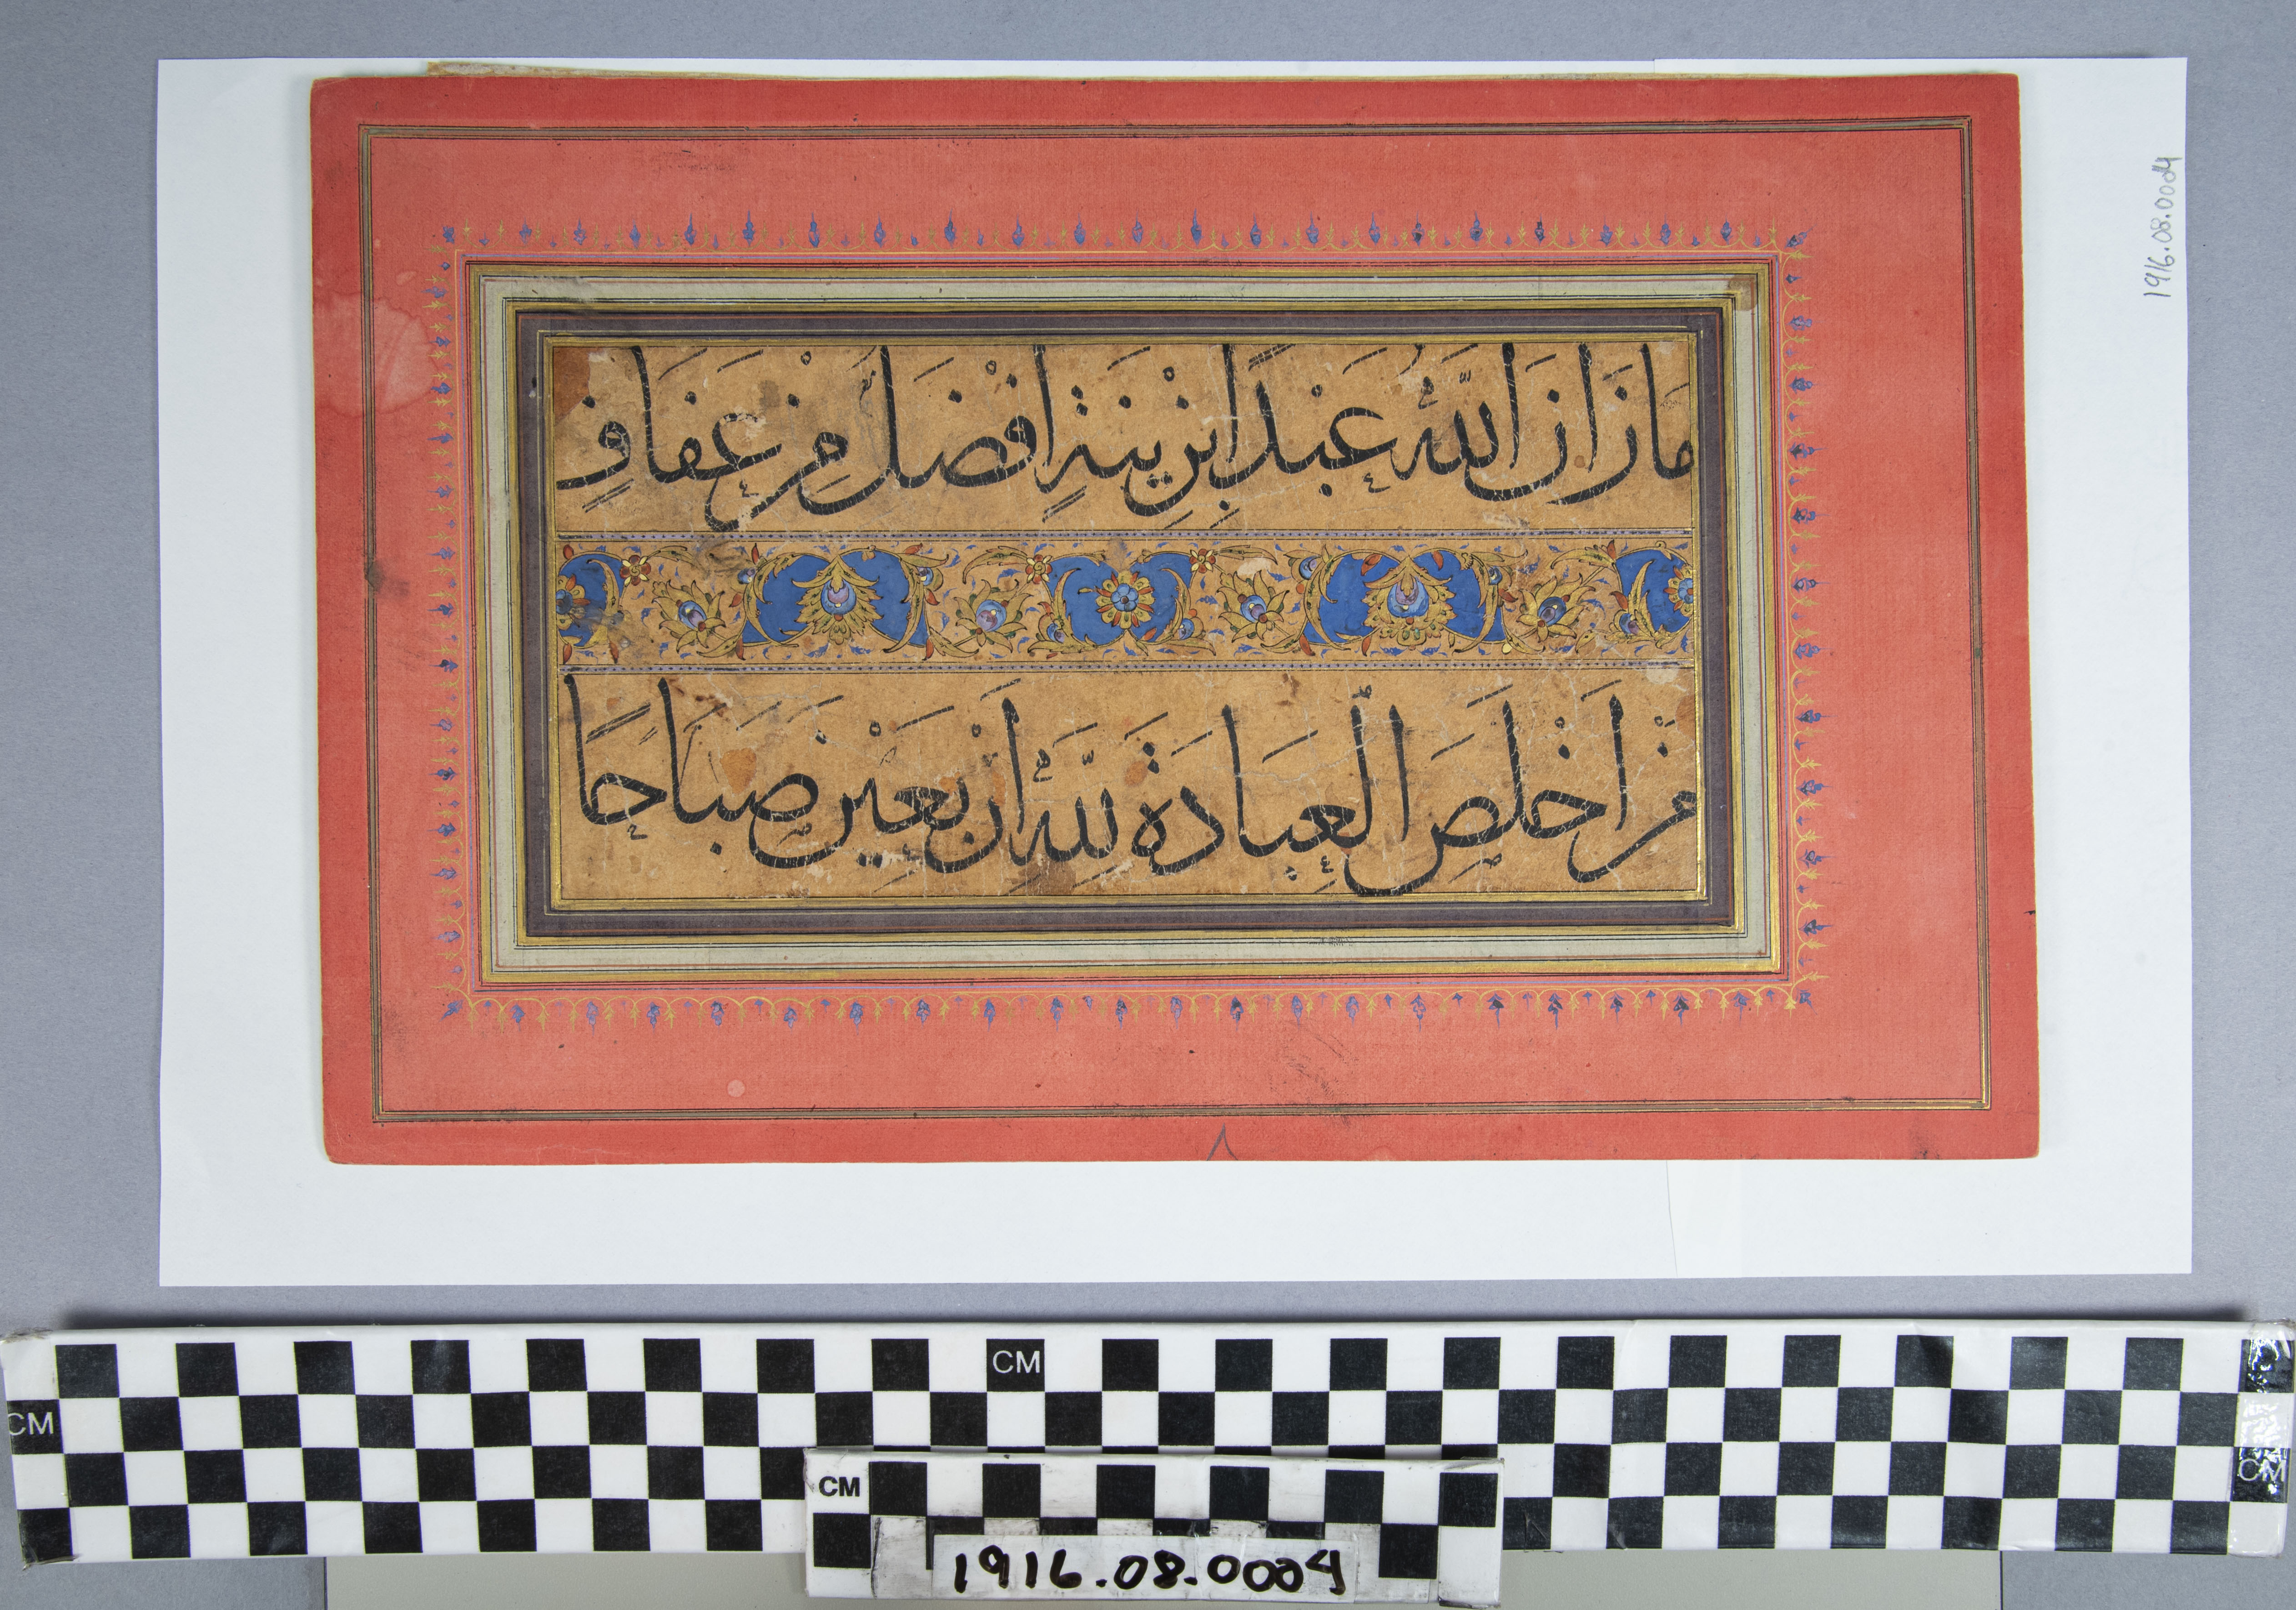 1916.08.0004
مَا زَانَ اللّٰهُ عَبْدًا بِزِينَةٍ اَفْضَلَ مِنْ عَفَافٍ
مَنْ اَخْلَصَ الْعِبَادَةَ لِلّٰهِ اَرْبَعِيْنَ صَبَاحًا
٨
CM
CM
CM
CM
1916.08.0004